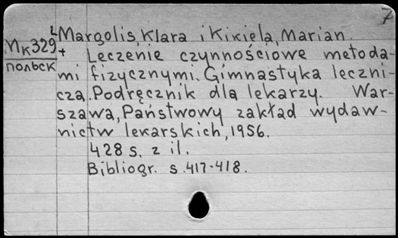 7
Margolis, Klara i Kikiela, Marian.
Mк329
польск
Leczenie czynnościowe metoda-
mi fizycznymi. Gimnastyka leczni-
cza. Podręcznik dlą lekarzy. War-
szawa, Państwowy zakład wydaw-
nictw lekarskich, 1956.
428 s. z il.
Bibliogr. s. 417-418.